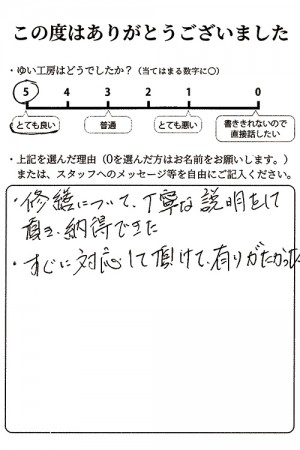 この度はありがとうございました
・ゆい工房はどうでしたか？（当てはまる数字に○）
5 4 3 2 1 0
とても良い 普通 とても悪い 書ききれないので直接話したい
・上記を選んだ理由（0を選んだ方はお名前をお願いします。）
または、スタッフへのメッセージ等を自由にご記入ください。
・修繕について、丁寧な説明をして
頂き、納得できた
・すぐに対応して頂けて、有りがたかった